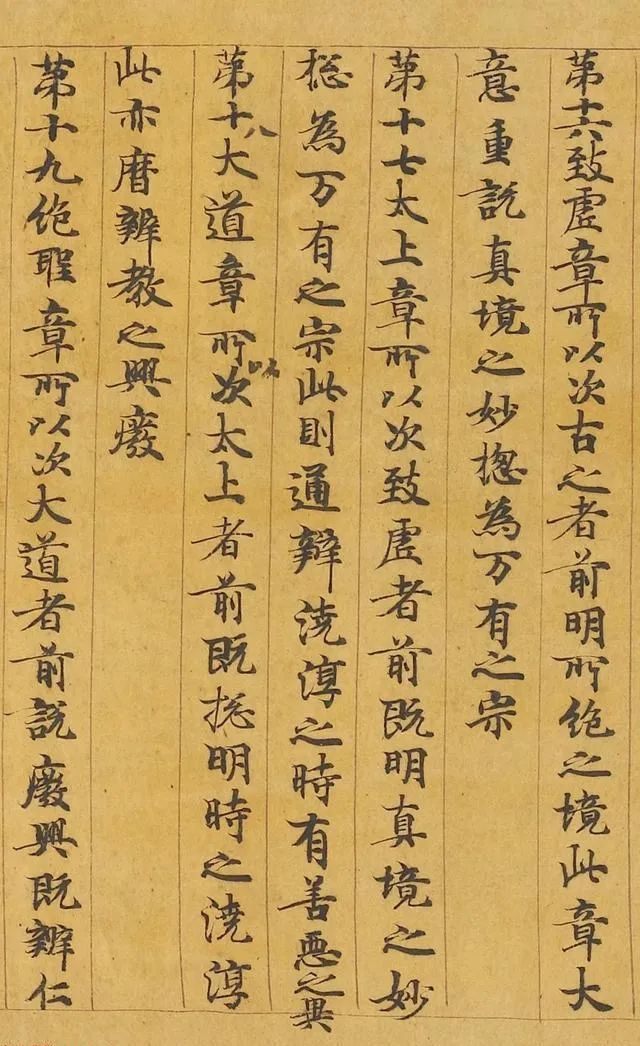 第十六致虚章所以次古之者前明所绝之境此章大
意重説真境之妙揔為万有之宗
第十七太上章所以次致虚者前既明真境之妙
揔為万有之宗此則通辯澆淳之時有善惡之異
第十八大道章所以次太上者前既揔明時之澆淳
此亦曆辨教之興廢
第十九绝聖章所以次大道者前説廢興既辨仁